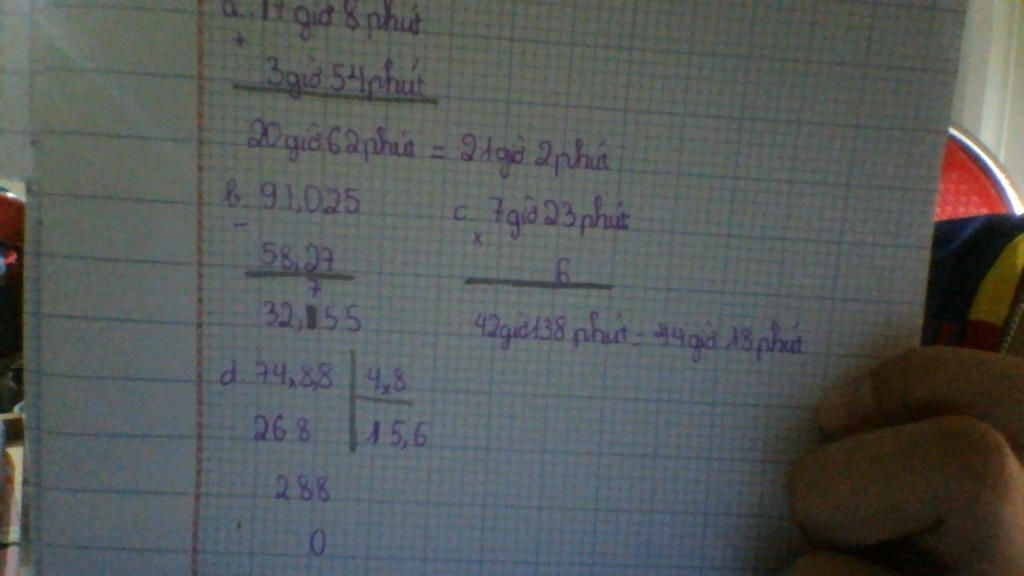 a. 17 giờ 8 phút
+
3 giờ 54 phút
20 giờ 62 phút = 21 giờ 2 phút
b. 91,025
-
58,27
7
32,55
c. 7 giờ 23 phút
x
6
42 giờ 138 phút = 44 giờ 18 phút
d. 74,8,8 4,8
268 15,6
288
0